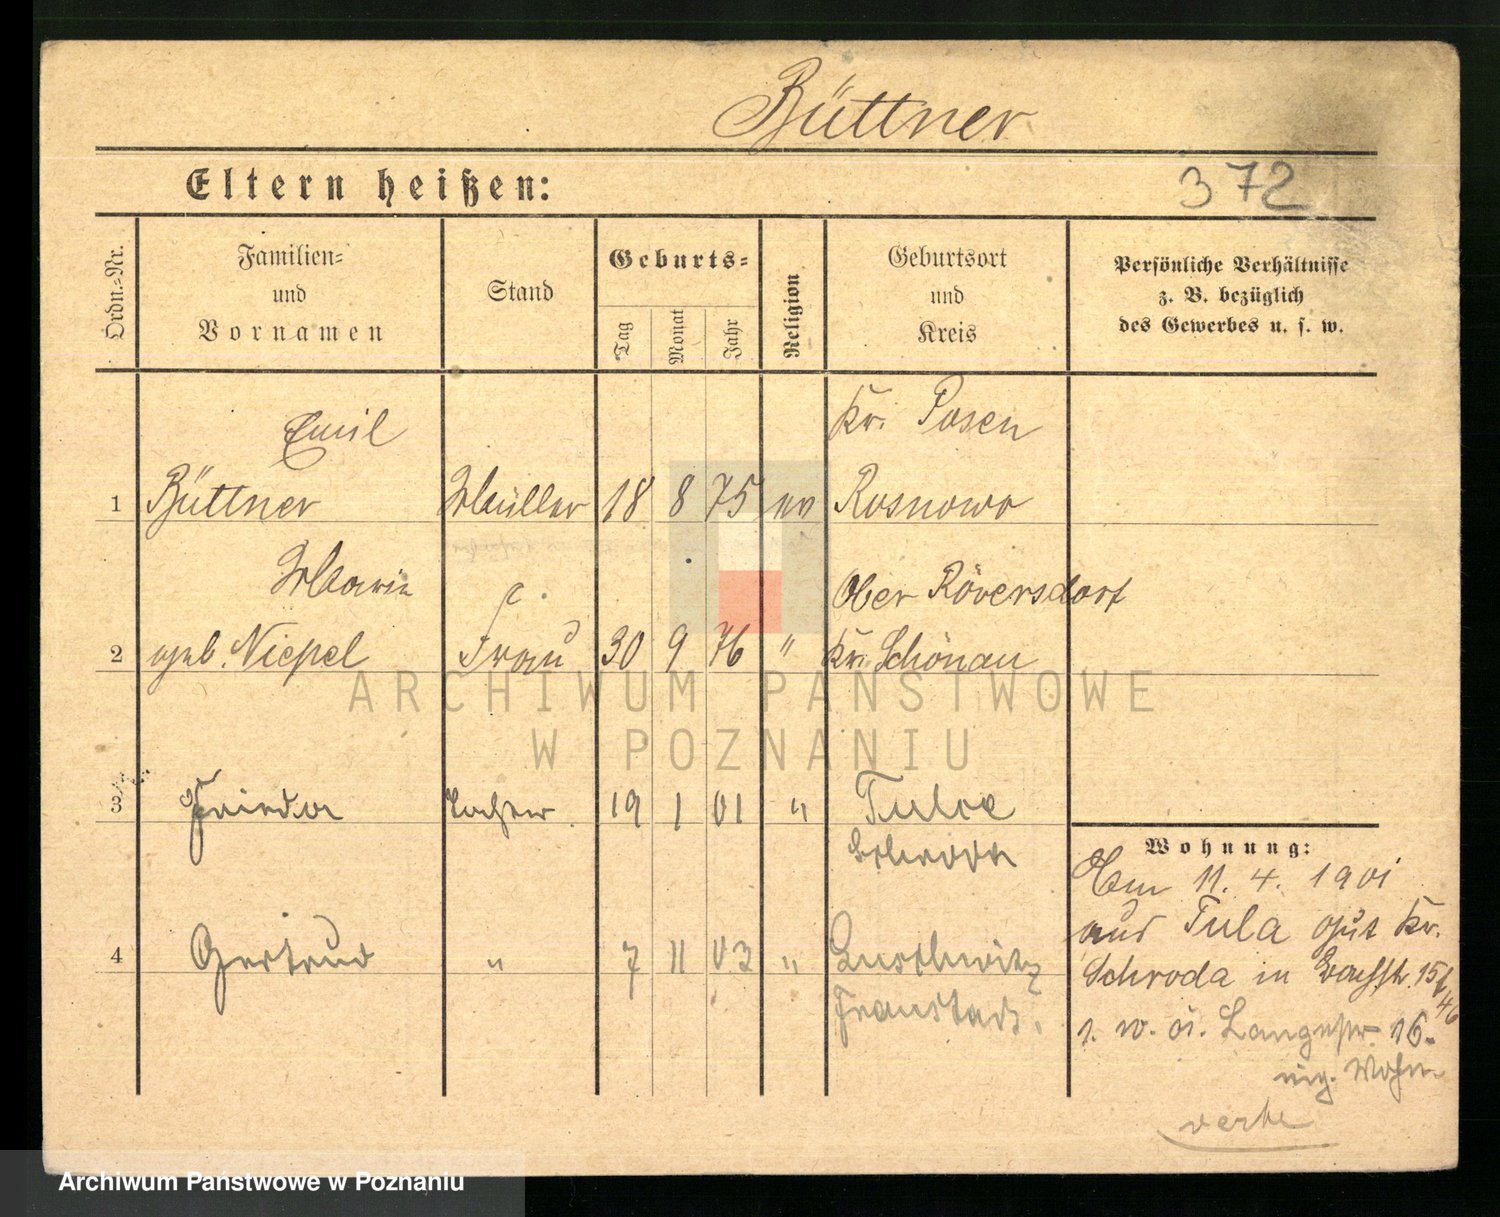 Büttner
Eltern heißen:
372
Ordn.-Nr.
Familien-
und
Vornamen
Stand
Geburts-
Tag
Monat
Jahr
Religion
Geburtsort
und
Kreis
Persönliche Verhältnisse
z. B. bezüglich
des Gewerbes u. s. w.
Emil
Kr. Posen
1 Büttner Müller 18 8 75 ev Rosnowo
Marie
Ober Röversdorf
2 geb. Niepel Frau 30 9 76 " Kr. Schönau
3 Frieda Tochter 19 1 01 " Tulce
Schroda
4 Gertrud " 7 11 03 "
Fraustadt.
Wohnung:
Am 11. 4. 1901
aus Tula Gut Kr.
Schroda in 15
1. Langestr. 16.
Wohn.
verte
ARCHIWUM PAŃSTWOWE
W POZNANIU
Archiwum Państwowe w Poznaniu